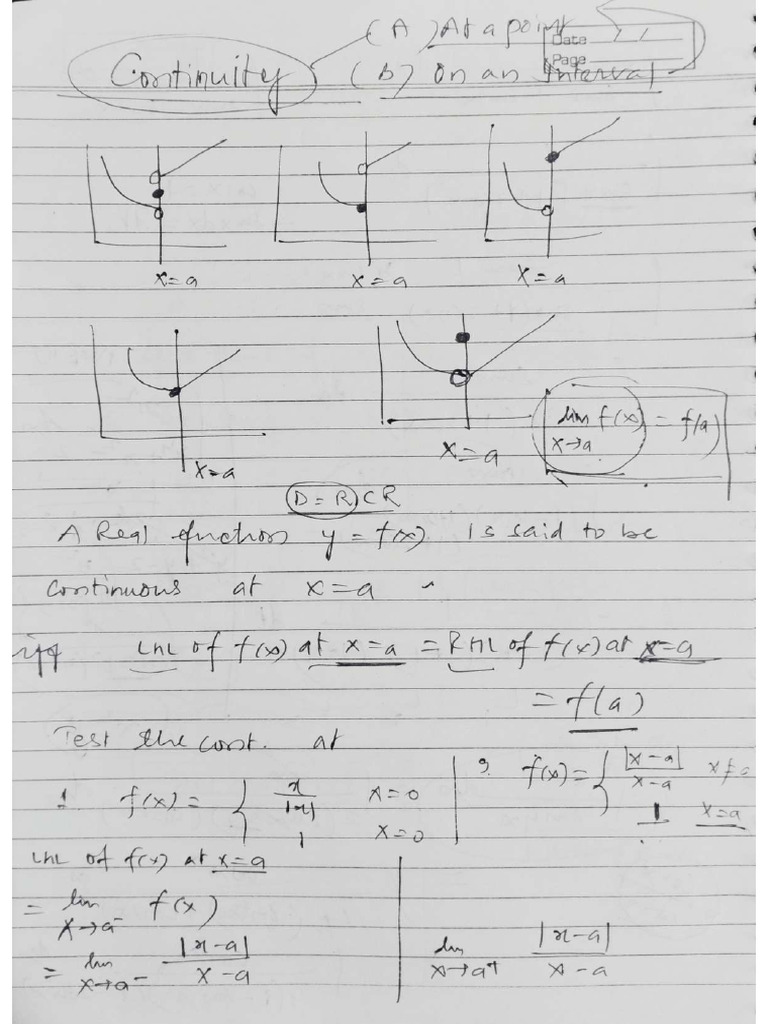 (A) At a point
Date / /
Page
Continuity (B) On an Interval
x=a x=a x=a
x=a x=a
lim f(x) = f(a)
x→a
D=R CR
A Real function y = f(x) is said to be
continuous at x=a
iff LHL of f(x) at x=a = RHL of f(x) at x=a
= f(a)
Test the cont. at
1 f(x) = { x/|x| x=0
1 x=0
9. f(x) = { |x-a|/x-a x≠a
1 x=a
LHL of f(x) at x=a
= lim f(x)
x→a⁻
= lim |x-a|/x-a
x→a⁻
lim |x-a|/x-a
x→a⁺